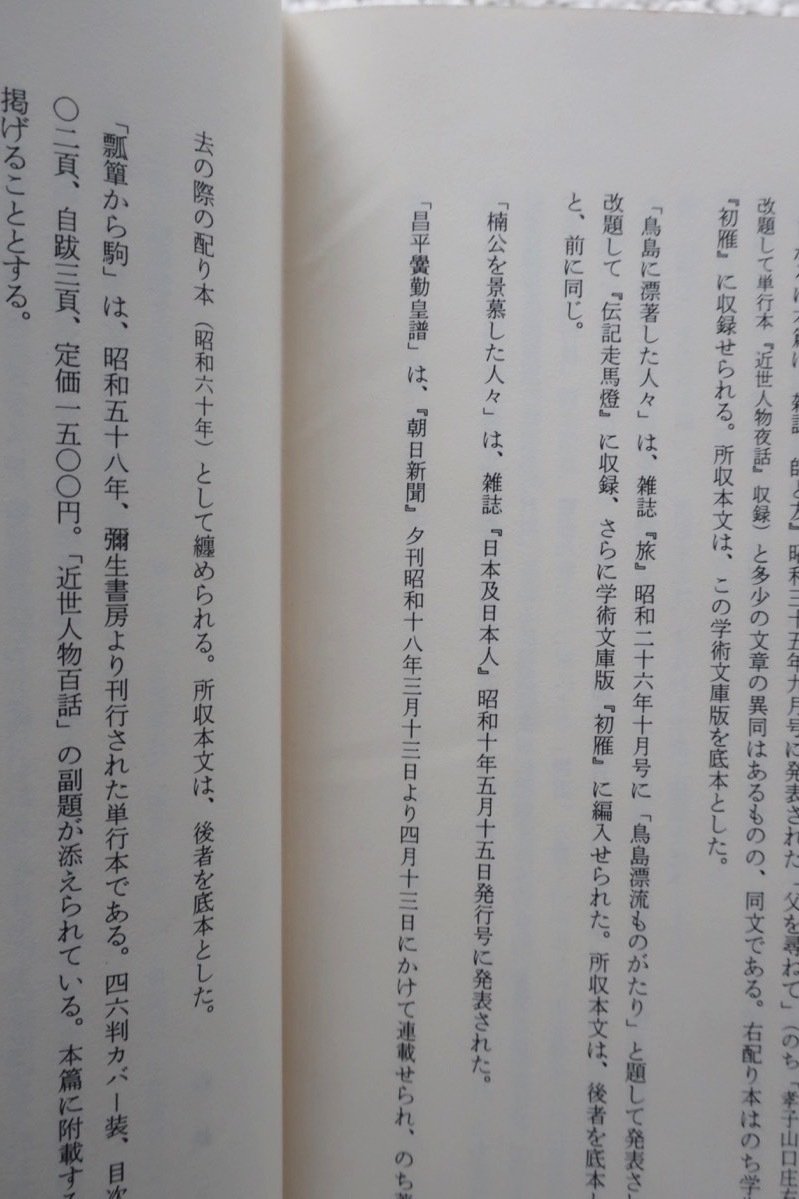 昭和三十五年九月号に発表された「父を尋ねて」(のち「孝子山口庄右
改題して単行本『近世人物夜話』収録)と多少の文章の異同はあるものの、同文である。右配り本はのち学
『初雁』に収録せられる。所収本文は、この学術文庫版を底本とした。
「鳥島に漂著した人々」は、雑誌『旅』昭和二十六年十月号に「鳥島漂流ものがたり」と題して発表さ
改題して『伝記走馬燈』に収録、さらに学術文庫版『初雁』に編入せられた。所収本文は、後者を底本
と、前に同じ。
「楠公を景慕した人々」は、雑誌『日本及日本人』昭和十年五月十五日発行号に発表された。
「昌平黌勤皇譜」は、『朝日新聞』夕刊昭和十八年三月十三日より四月十三日にかけて連載せられ、のち著
去の際の配り本(昭和六十年)として纏められる。所収本文は、後者を底本とした。
「瓢簞から駒」は、昭和五十八年、彌生書房より刊行された単行本である。四六判カバー装、目次
〇二頁、自跋三頁、定価一五〇〇円。「近世人物百話」の副題が添えられている。本篇に附載する
掲げることとする。